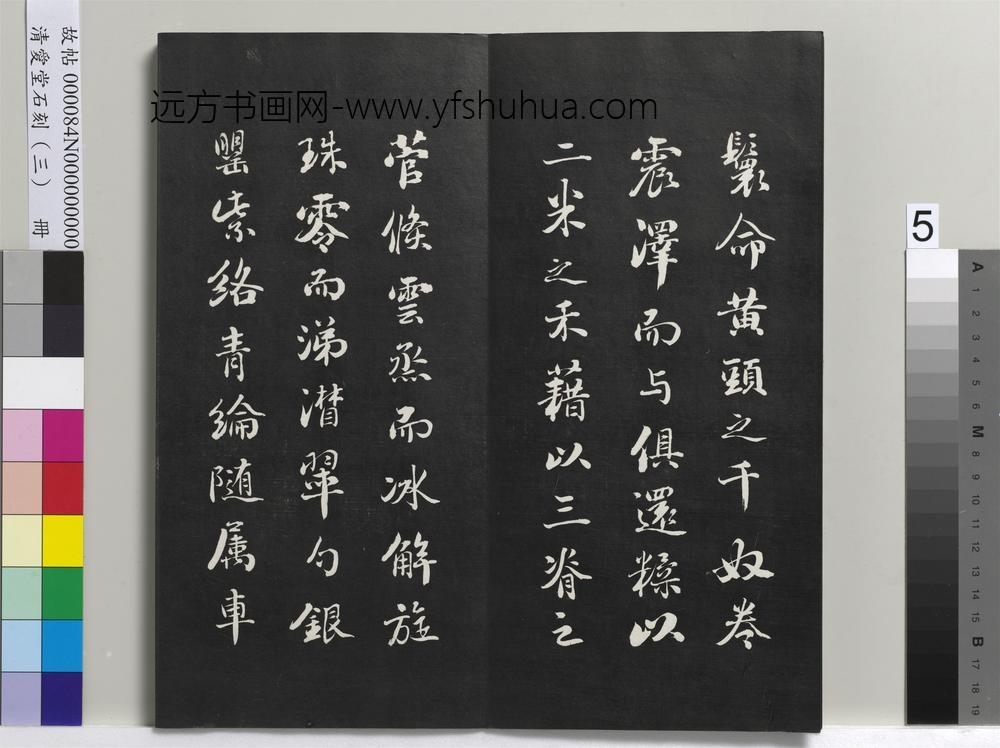 鬟命黄頭之千奴卷
震澤而与俱還糅以
二米之禾藉以三脊之
菅倏雲烝而冰解旋
珠零而涕潸翠勺銀
罌紫絡青綸随属車
远方书画网-www.yfshuhua.com
故帖 000084N000000000
清愛堂石刻(三) 冊
5
A 1 2 3 4 5 6 M 8 9 10 11 12 13 14 15 B 17 18 19